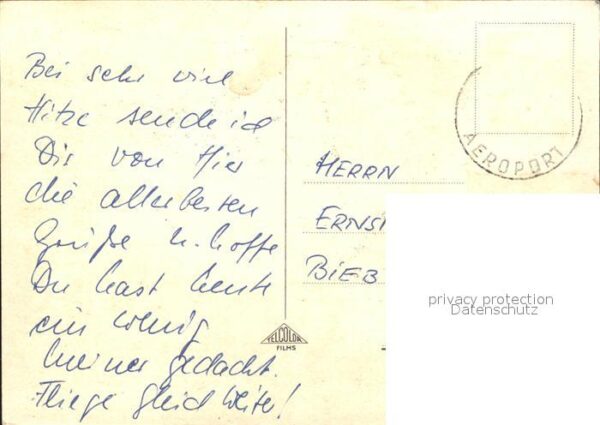 Bei sehr viel
Hitze sende ich
Dir von Hier
die allerbesten
Grüße u. hoffe
Du hast heute
ein wenig
meiner gedacht.
Fliege gleich weiter!
AEROPORT
HERRN
ERNST
BIEB
privacy protection
Datenschutz
TELCOLOR
FILMS